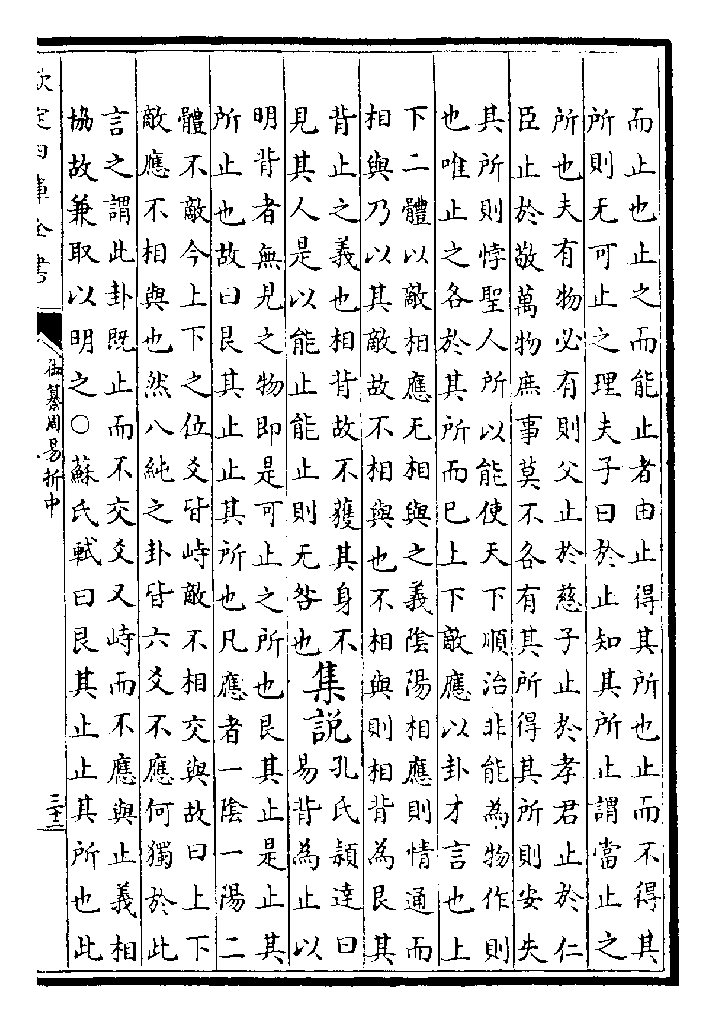 而止也止之而能止者由止得其所也止而不得其
所則无可止之理夫子曰於止知其所止謂當止之
所也夫有物必有則父止於慈子止於孝君止於仁
臣止於敬萬物庶事莫不各有其所得其所則安失
其所則悖聖人所以能使天下順治非能為物作則
也唯止之各於其所而已上下敵應以卦才言也上
下二體以敵相應无相與之義陰陽相應則情通而
相與乃以其敵故不相與也不相與則相背為艮其
背止之義也相背故不獲其身不
見其人是以能止能止則无咎也
集說
孔氏穎達曰
易背為止以
明背者無見之物即是可止之所也艮其止是止其
所止也故曰艮其止止其所也凡應者一陰一陽二
體不敵今上下之位爻皆峙敵不相交與故曰上下
敵應不相與也然八純之卦皆六爻不應何獨於此
言之謂此卦既止而不交爻又峙而不應與止義相
協故兼取以明之○蘇氏軾曰艮其止止其所也此
欽定四庫全書
御纂周易折中
三十二